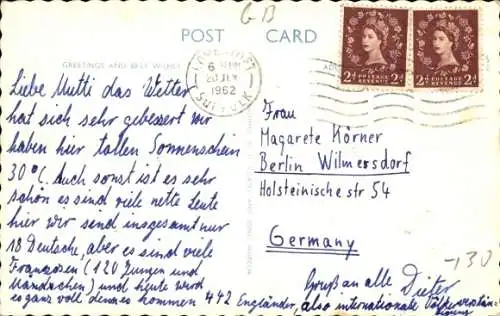 GB
POST CARD
GREETINGS AND BEST WISHES
LOWESTOFT
6
20 JLY
1962
SUFFOLK
2d POSTAGE REVENUE 2d
2d POSTAGE REVENUE 2d
Liebe Mutti das Wetter
hat sich sehr gebessert wir
haben hier tollen Sonnenschein
30°C. Auch sonst ist es sehr
schön es sind viele nette Leute
hier wir sind insgesamt nur
18 Deutsche, aber es sind viele
Franzosen (120 Jungen und
Mädchen) und heute wird
es ganz voll denn es kommen 442 Engländer, also internationale
Gruß an alle Dieter
Frau
Magarete Körner
Berlin Wilmersdorf
Holsteinische str 54
Germany
-,130